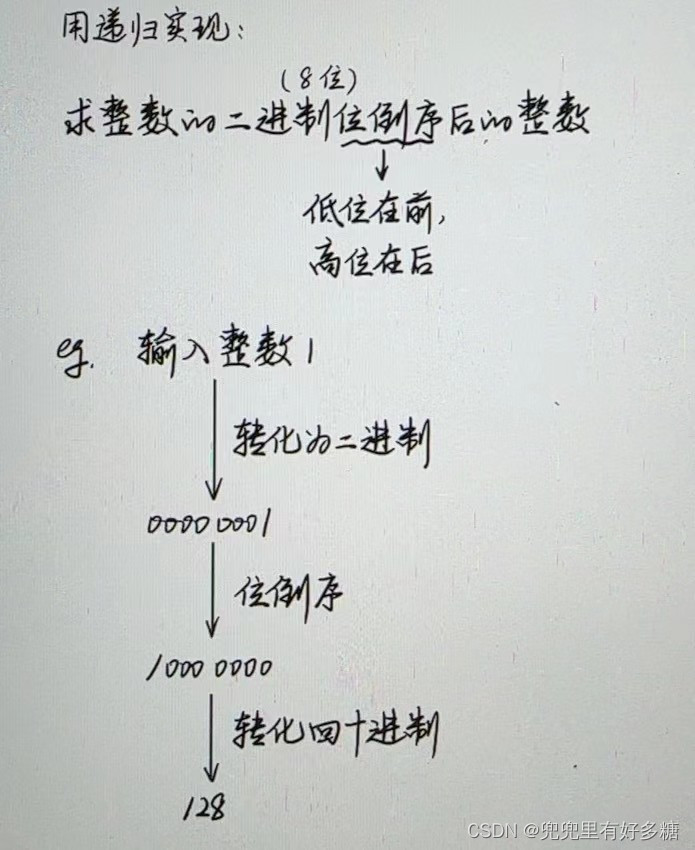 用递归实现:
(8位)
求整数的二进制位倒序后的整数
低位在前,
高位在后
eg. 输入整数1
转化为二进制
0000 0001
位倒序
1000 0000
转化回十进制
128
CSDN @兜兜里有好多糖